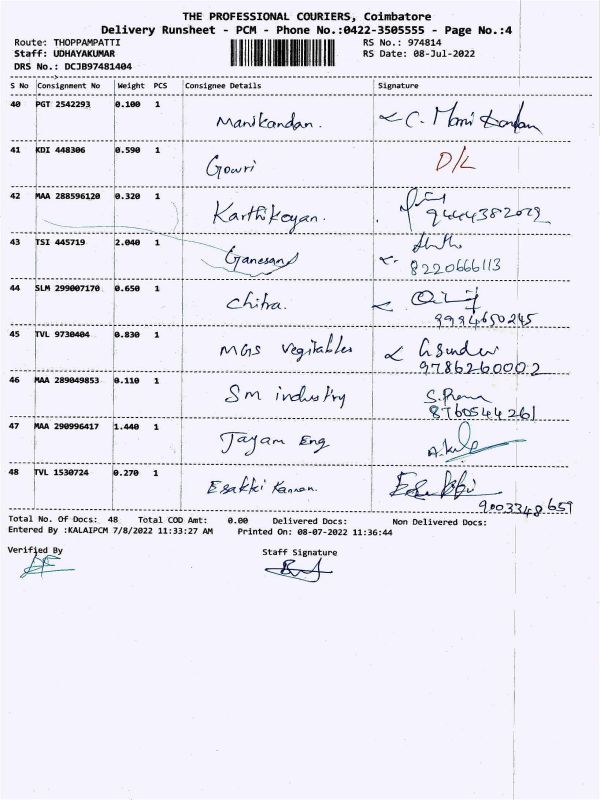 THE PROFESSIONAL COURIERS, Coimbatore
Delivery Runsheet - PCM - Phone No.:0422-3505555 - Page No.:4
Route: THOPPAMPATTI RS No.: 974814
Staff: UDHAYAKUMAR RS Date: 08-Jul-2022
DRS No.: DCJB97481404
S No Consignment No Weight PCS Consignee Details Signature
40 PGT 2542293 0.100 1 Manikandan. C. Manikandan
41 KDI 448306 0.590 1 Gowri D/L
42 MAA 288596120 0.320 1 Karthikeyan. 9444382029
43 TSI 445719 2.040 1 Ganesan
8220666113
44 SLM 299007170 0.650 1 Chitra.
9994650245
45 TVL 9730404 0.830 1 MGS Vegitables
9786260002
46 MAA 289049853 0.110 1 SM industry
8760544261
47 MAA 290996417 1.440 1 Jayam Eng
48 TVL 1530724 0.270 1 Esakki Kannan. Esakki
9003348659
Total No. Of Docs: 48 Total COD Amt: 0.00 Delivered Docs: Non Delivered Docs:
Entered By :KALAIPCM 7/8/2022 11:33:27 AM Printed On: 08-07-2022 11:36:44
Verified By Staff Signature